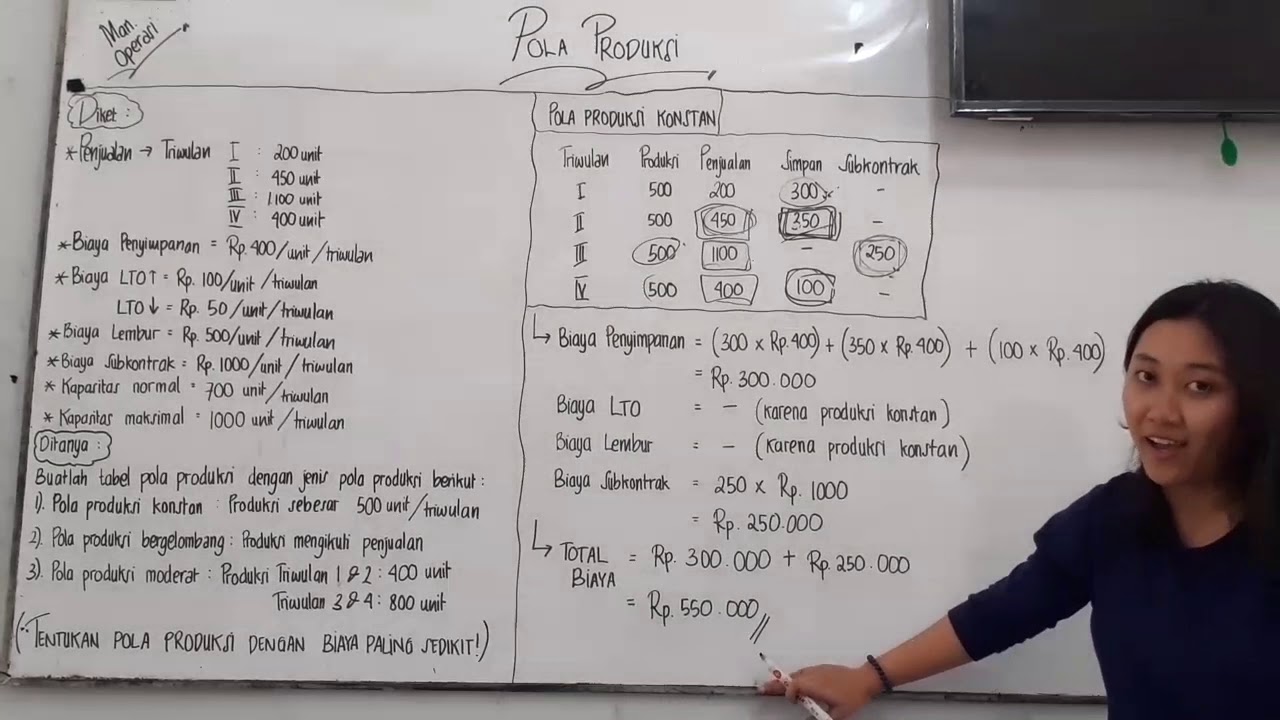 Man.
Operasi
POLA PRODUKSI
Diket :
* Penjualan → Triwulan I : 200 unit
II : 450 unit
III : 1.100 unit
IV : 400 unit
* Biaya Penyimpanan = Rp. 400/unit/triwulan
* Biaya LTO↑ = Rp. 100/unit/triwulan
LTO↓ = Rp. 50/unit/triwulan
* Biaya Lembur = Rp. 500/unit/triwulan
* Biaya Subkontrak = Rp. 1000/unit/triwulan
* Kapasitas normal = 700 unit/triwulan
* Kapasitas maksimal = 1000 unit/triwulan
Ditanya :
Buatlah tabel pola produksi dengan jenis pola produksi berikut :
1). Pola produksi konstan : Produksi sebesar 500 unit/triwulan
2). Pola produksi bergelombang : Produksi mengikuti penjualan
3). Pola produksi moderat : Produksi Triwulan 1 & 2 : 400 unit
Triwulan 3 & 4 : 800 unit
(∵ TENTUKAN POLA PRODUKSI DENGAN BIAYA PALING SEDIKIT!)
POLA PRODUKSI KONSTAN
Triwulan Produksi Penjualan Simpan Subkontrak
I 500 200 300 -
II 500 450 350 -
III 500 1100 - 250
IV 500 400 100 -
↳ Biaya Penyimpanan = (300 x Rp.400) + (350 x Rp.400) + (100 x Rp.400)
= Rp. 300.000
Biaya LTO = - (karena produksi konstan)
Biaya Lembur = - (karena produksi konstan)
Biaya Subkontrak = 250 x Rp. 1000
= Rp. 250.000
↳ TOTAL BIAYA = Rp. 300.000 + Rp. 250.000
= Rp. 550.000 //